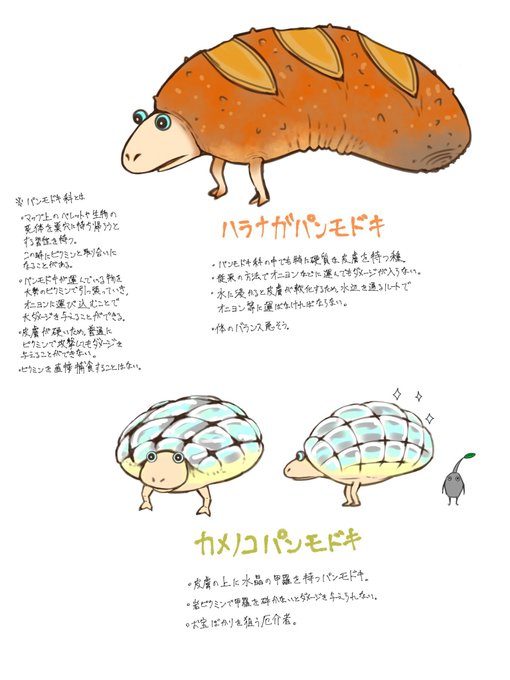 ハラナガパンモドキ
・パンモドキ科の中でも特に硬質な皮膚を持つ種。
・従来の方法でオニヨンなどに運んでもダメージが入らない。
・水に浸かると皮膚が軟化するため、水辺を通るルートで
オニヨン等に運ばなければならない。
・体のバランス悪そう。
※パンモドキ科とは
・マップ上のペレットや生物の
死体を巣穴に持ち帰ろうと
する習性を持つ。
この時にピクミンと取り合いに
なることがある。
・パンモドキが運んでいる物を
大勢のピクミンで引っ張っていき、
オニヨンに運び込むことで
大ダメージを与えることができる。
・皮膚が硬いため、普通に
ピクミンで攻撃してもダメージを
与えることができない。
・ピクミンを直接捕食することはない。
カメノコパンモドキ
・皮膚の上に水晶の甲羅を持つパンモドキ。
・岩ピクミンで甲羅を砕かないとダメージを与えられない。
・お宝ばかりを狙う厄介者。